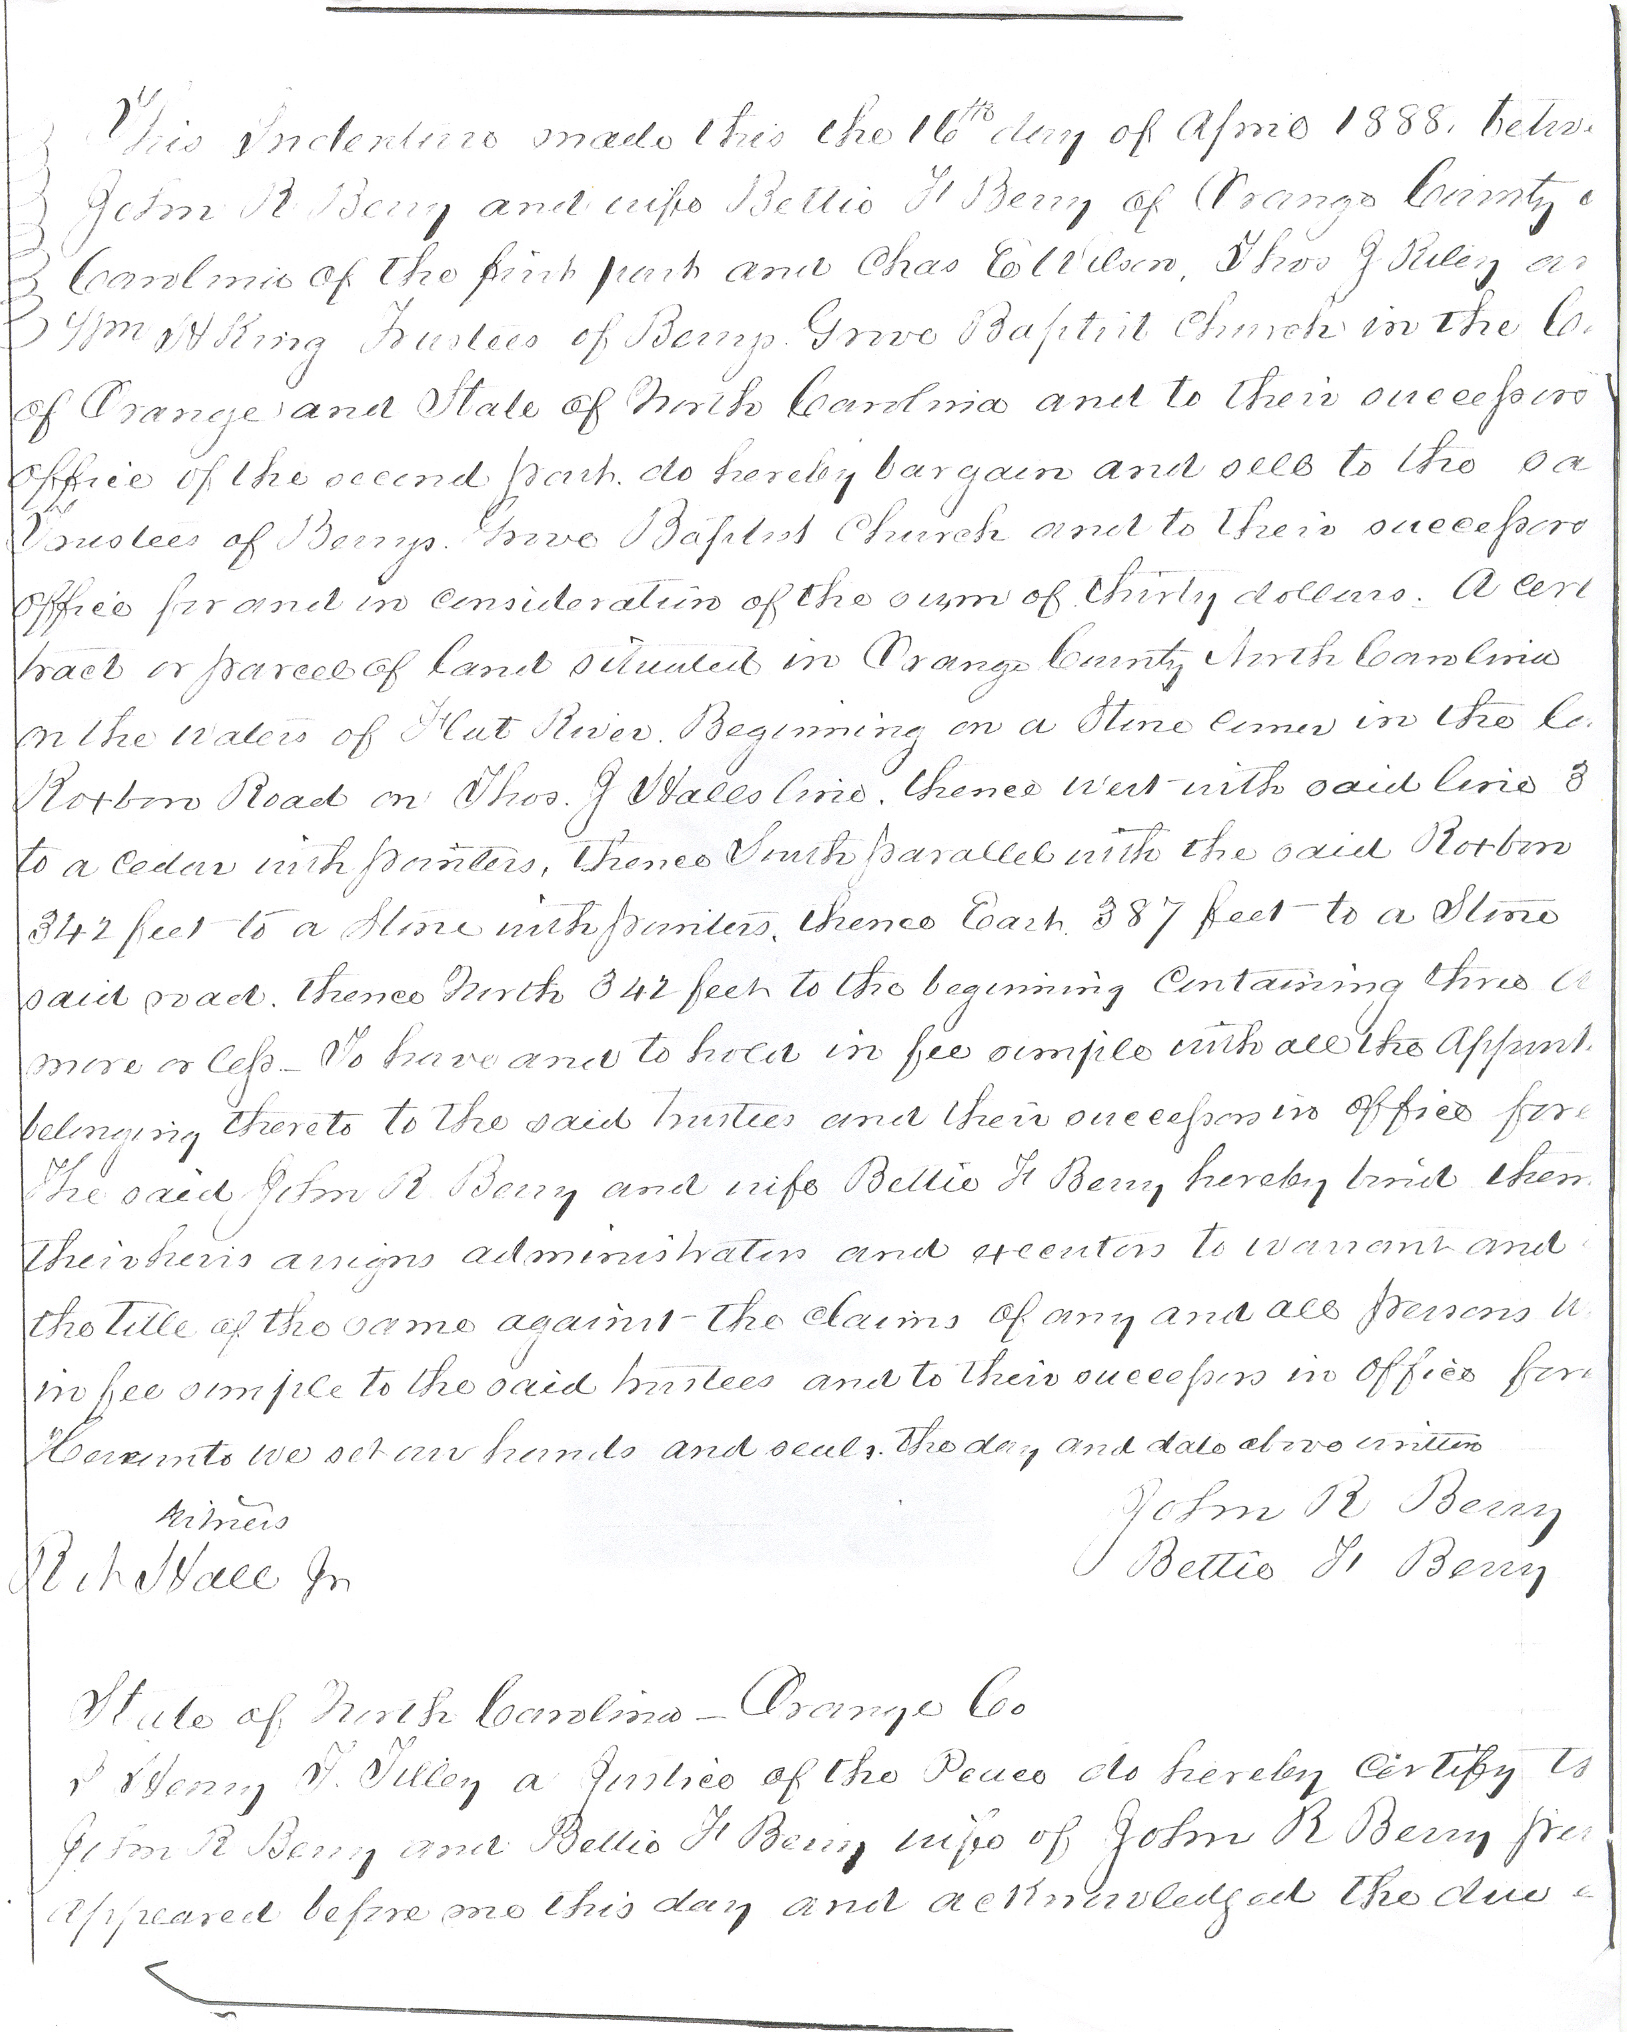 This Indenture made this the 16th day of April 1888. betw
John R Berry and wife Bettie F Berry of Orange County
Carolina of the first part and Chas E Wilson, Thos J Riley an
Wm H King Trustees of Berrys Grove Baptist Church in the Co
of Orange and State of North Carolina and to their successors
office of the second part. do hereby bargain and sell to the sa
Trustees of Berrys Grove Baptist Church and to their successors
office for and in consideration of the sum of thirty dollars. A cert
tract or parcel of land situated in Orange County North Carolina
on the waters of Flat River. Beginning on a Stone corner in the
Roxboro Road on Thos. J Halls line. thence West with said line 3
to a cedar with pointers, thence South parallel with the said Roxboro
342 feet to a Stone with pointers, thence East 387 feet to a Stone
said road. thence North 342 feet to the beginning Containing three A
more or less — To have and to hold in fee simple with all the Appurt
belonging thereto to the said trustees and their successors in office fore
The said John R Berry and wife Bettie F Berry hereby bind them
their heirs assigns administrators and executors to warrant and
the title of the same against the claims of any and all persons w
in fee simple to the said trustees and to their successors in office fore
Hereunto we set our hands and seals. the day and date above written
John R Berry
Witness
Bettie F Berry
Hall Jr
State of North Carolina — Orange Co
I Henry F. Tilley a Justice of the Peace do hereby certify t
John R Berry and Bettie F Berry wife of John R Berry per
appeared before me this day and acknowledged the due e